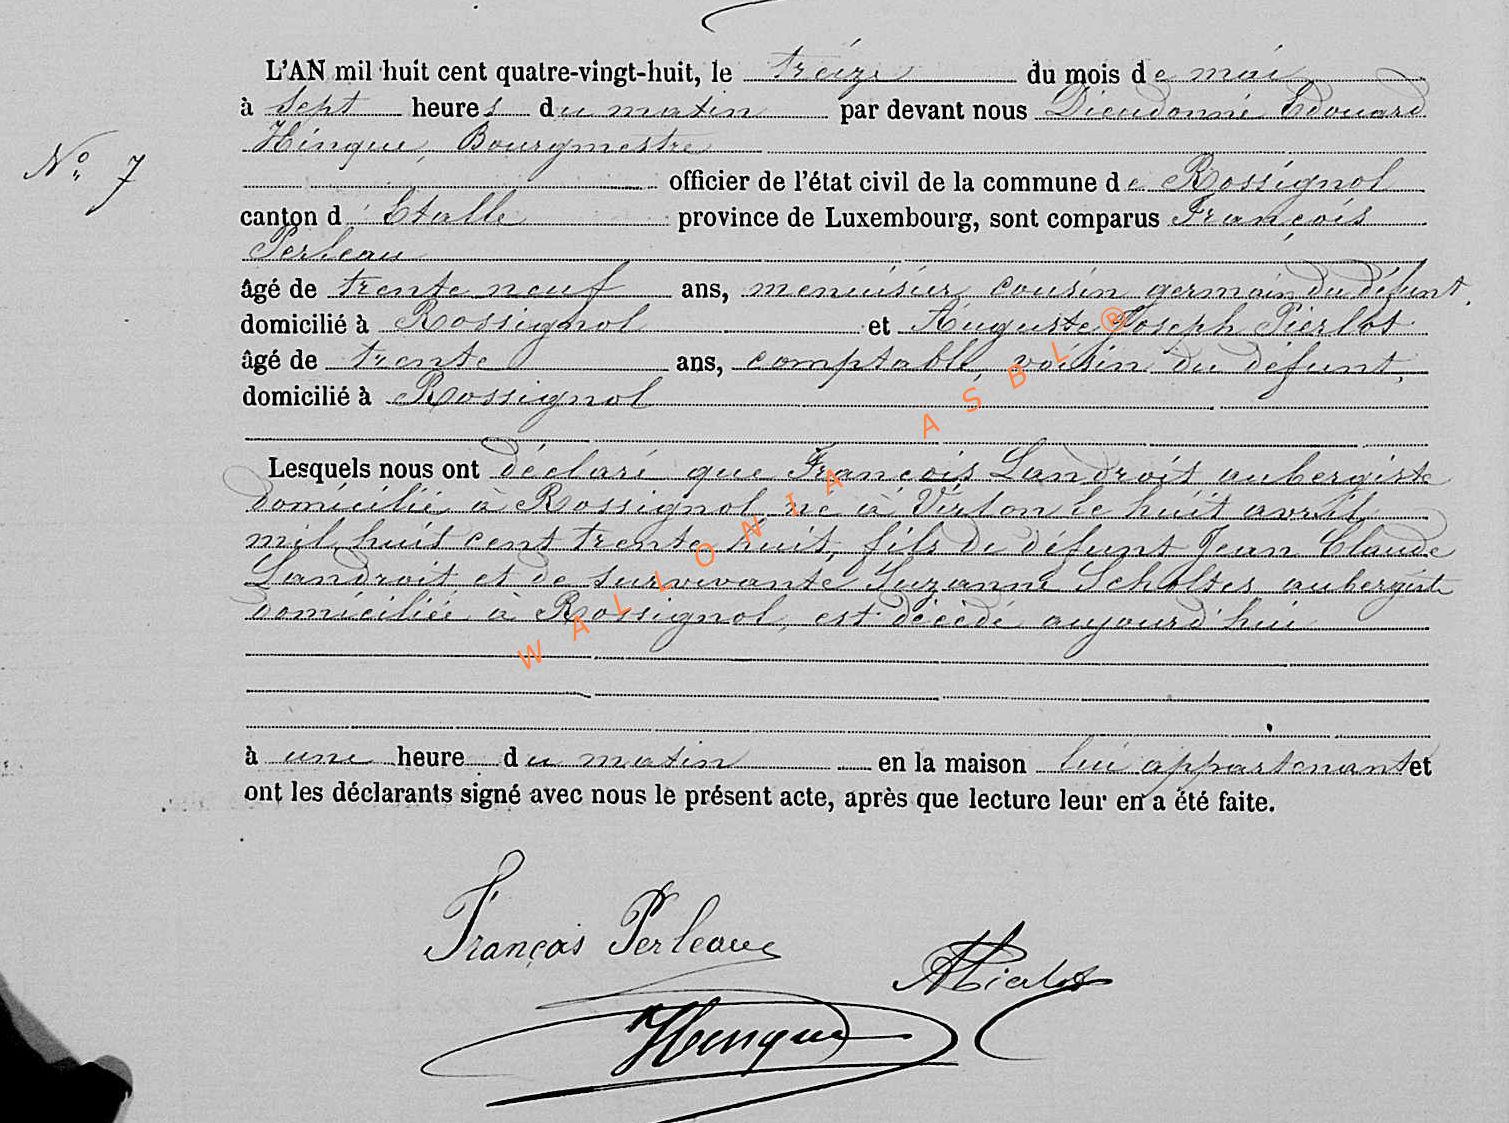 L'AN mil huit cent quatre-vingt-huit, le treize du mois de mai
à sept heures du matin par devant nous Dieudonné Edouard
Hinque, Bourgmestre
officier de l'état civil de la commune de Rossignol
canton d'Etalle province de Luxembourg, sont comparus François
Perleau
âgé de trente neuf ans, menuisier, cousin germain du défunt,
domicilié à Rossignol et Auguste Joseph Pierlot
âgé de trente ans, comptable, voisin du défunt,
domicilié à Rossignol
Lesquels nous ont déclaré que François Landroit aubergiste
domicilié à Rossignol, né à Virton le huit avril
mil huit cent trente huit, fils de défunt Jean Claude
Landroit et de survivante Suzanne Scholtes, aubergiste
domiciliée à Rossignol, est décédé aujourd'hui
à une heure du matin en la maison lui appartenant et
ont les déclarants signé avec nous le présent acte, après que lecture leur en a été faite.
No 7
François Perleau
APierlot
Hinque
WALLONIA ASBL ®